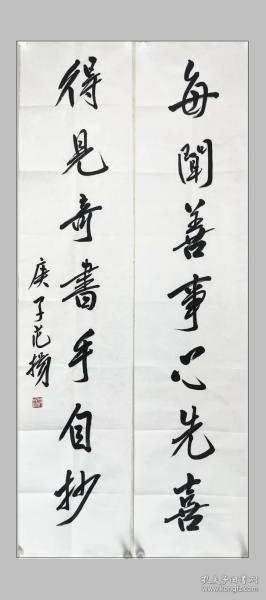 每聞善事心先喜
得見奇書手自抄
庚子范扬
孔夫子旧书网